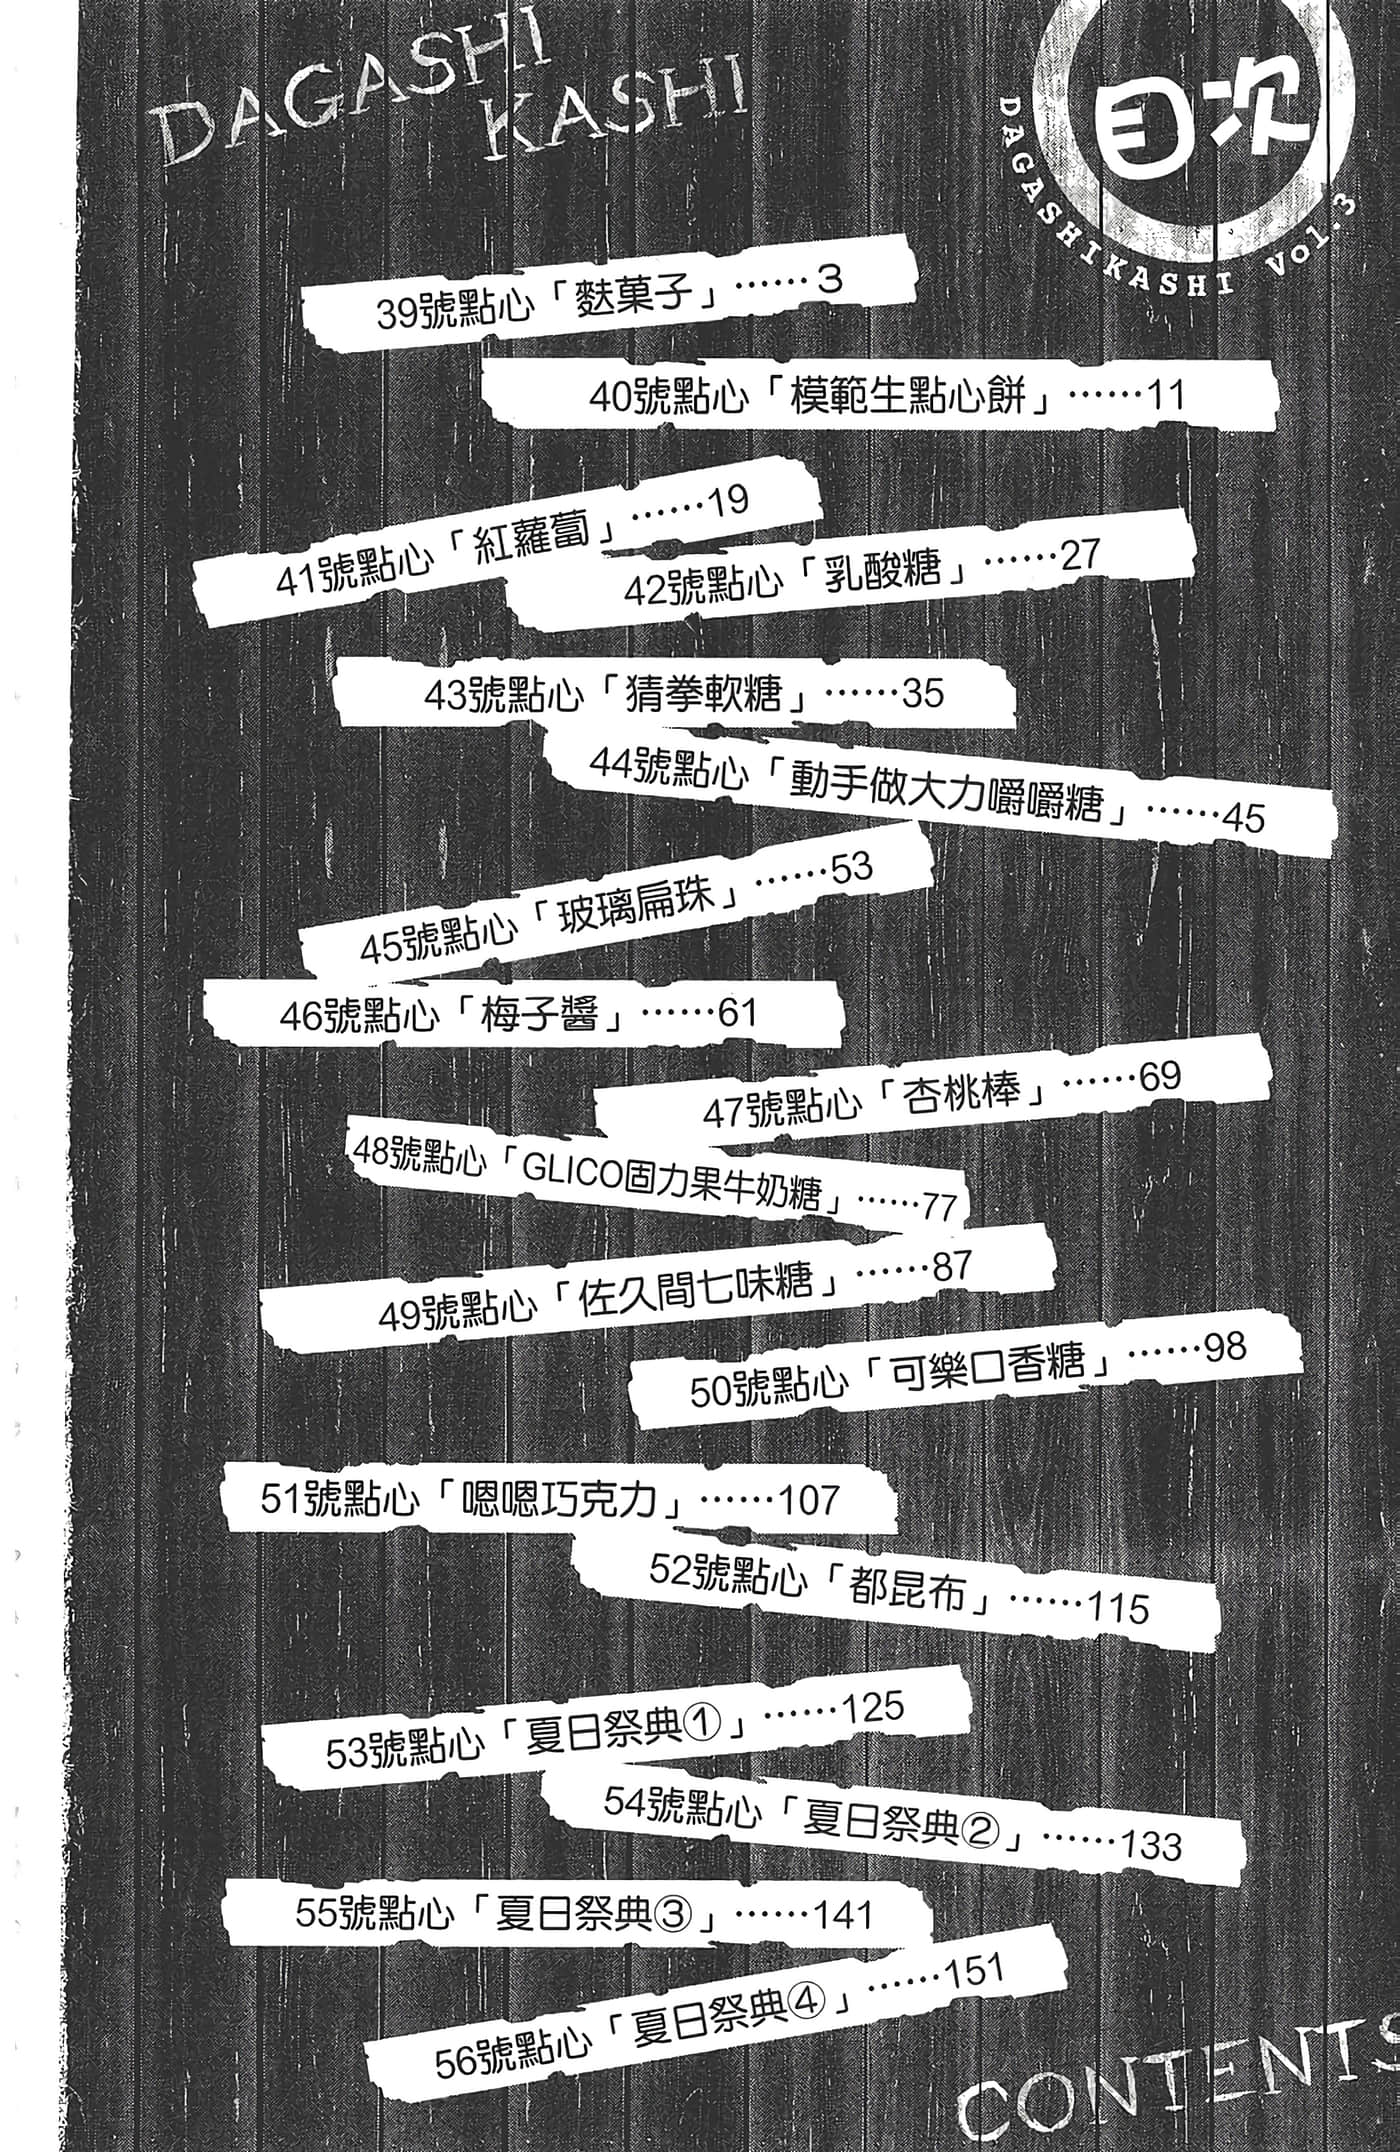 DAGASHI
KASHI
目次
DAGASHIKASHI Vol.3
39號點心「麩菓子」……3
40號點心「模範生點心餅」……11
41號點心「紅蘿蔔」……19
42號點心「乳酸糖」……27
43號點心「猜拳軟糖」……35
44號點心「動手做大力嚼嚼糖」……45
45號點心「玻璃扁珠」……53
46號點心「梅子醬」……61
47號點心「杏桃棒」……69
48號點心「GLICO固力果牛奶糖」……77
49號點心「佐久間七味糖」……87
50號點心「可樂口香糖」……98
51號點心「嗯嗯巧克力」……107
52號點心「都昆布」……115
53號點心「夏日祭典①」……125
54號點心「夏日祭典②」……133
55號點心「夏日祭典③」……141
56號點心「夏日祭典④」……151
CONTENTS